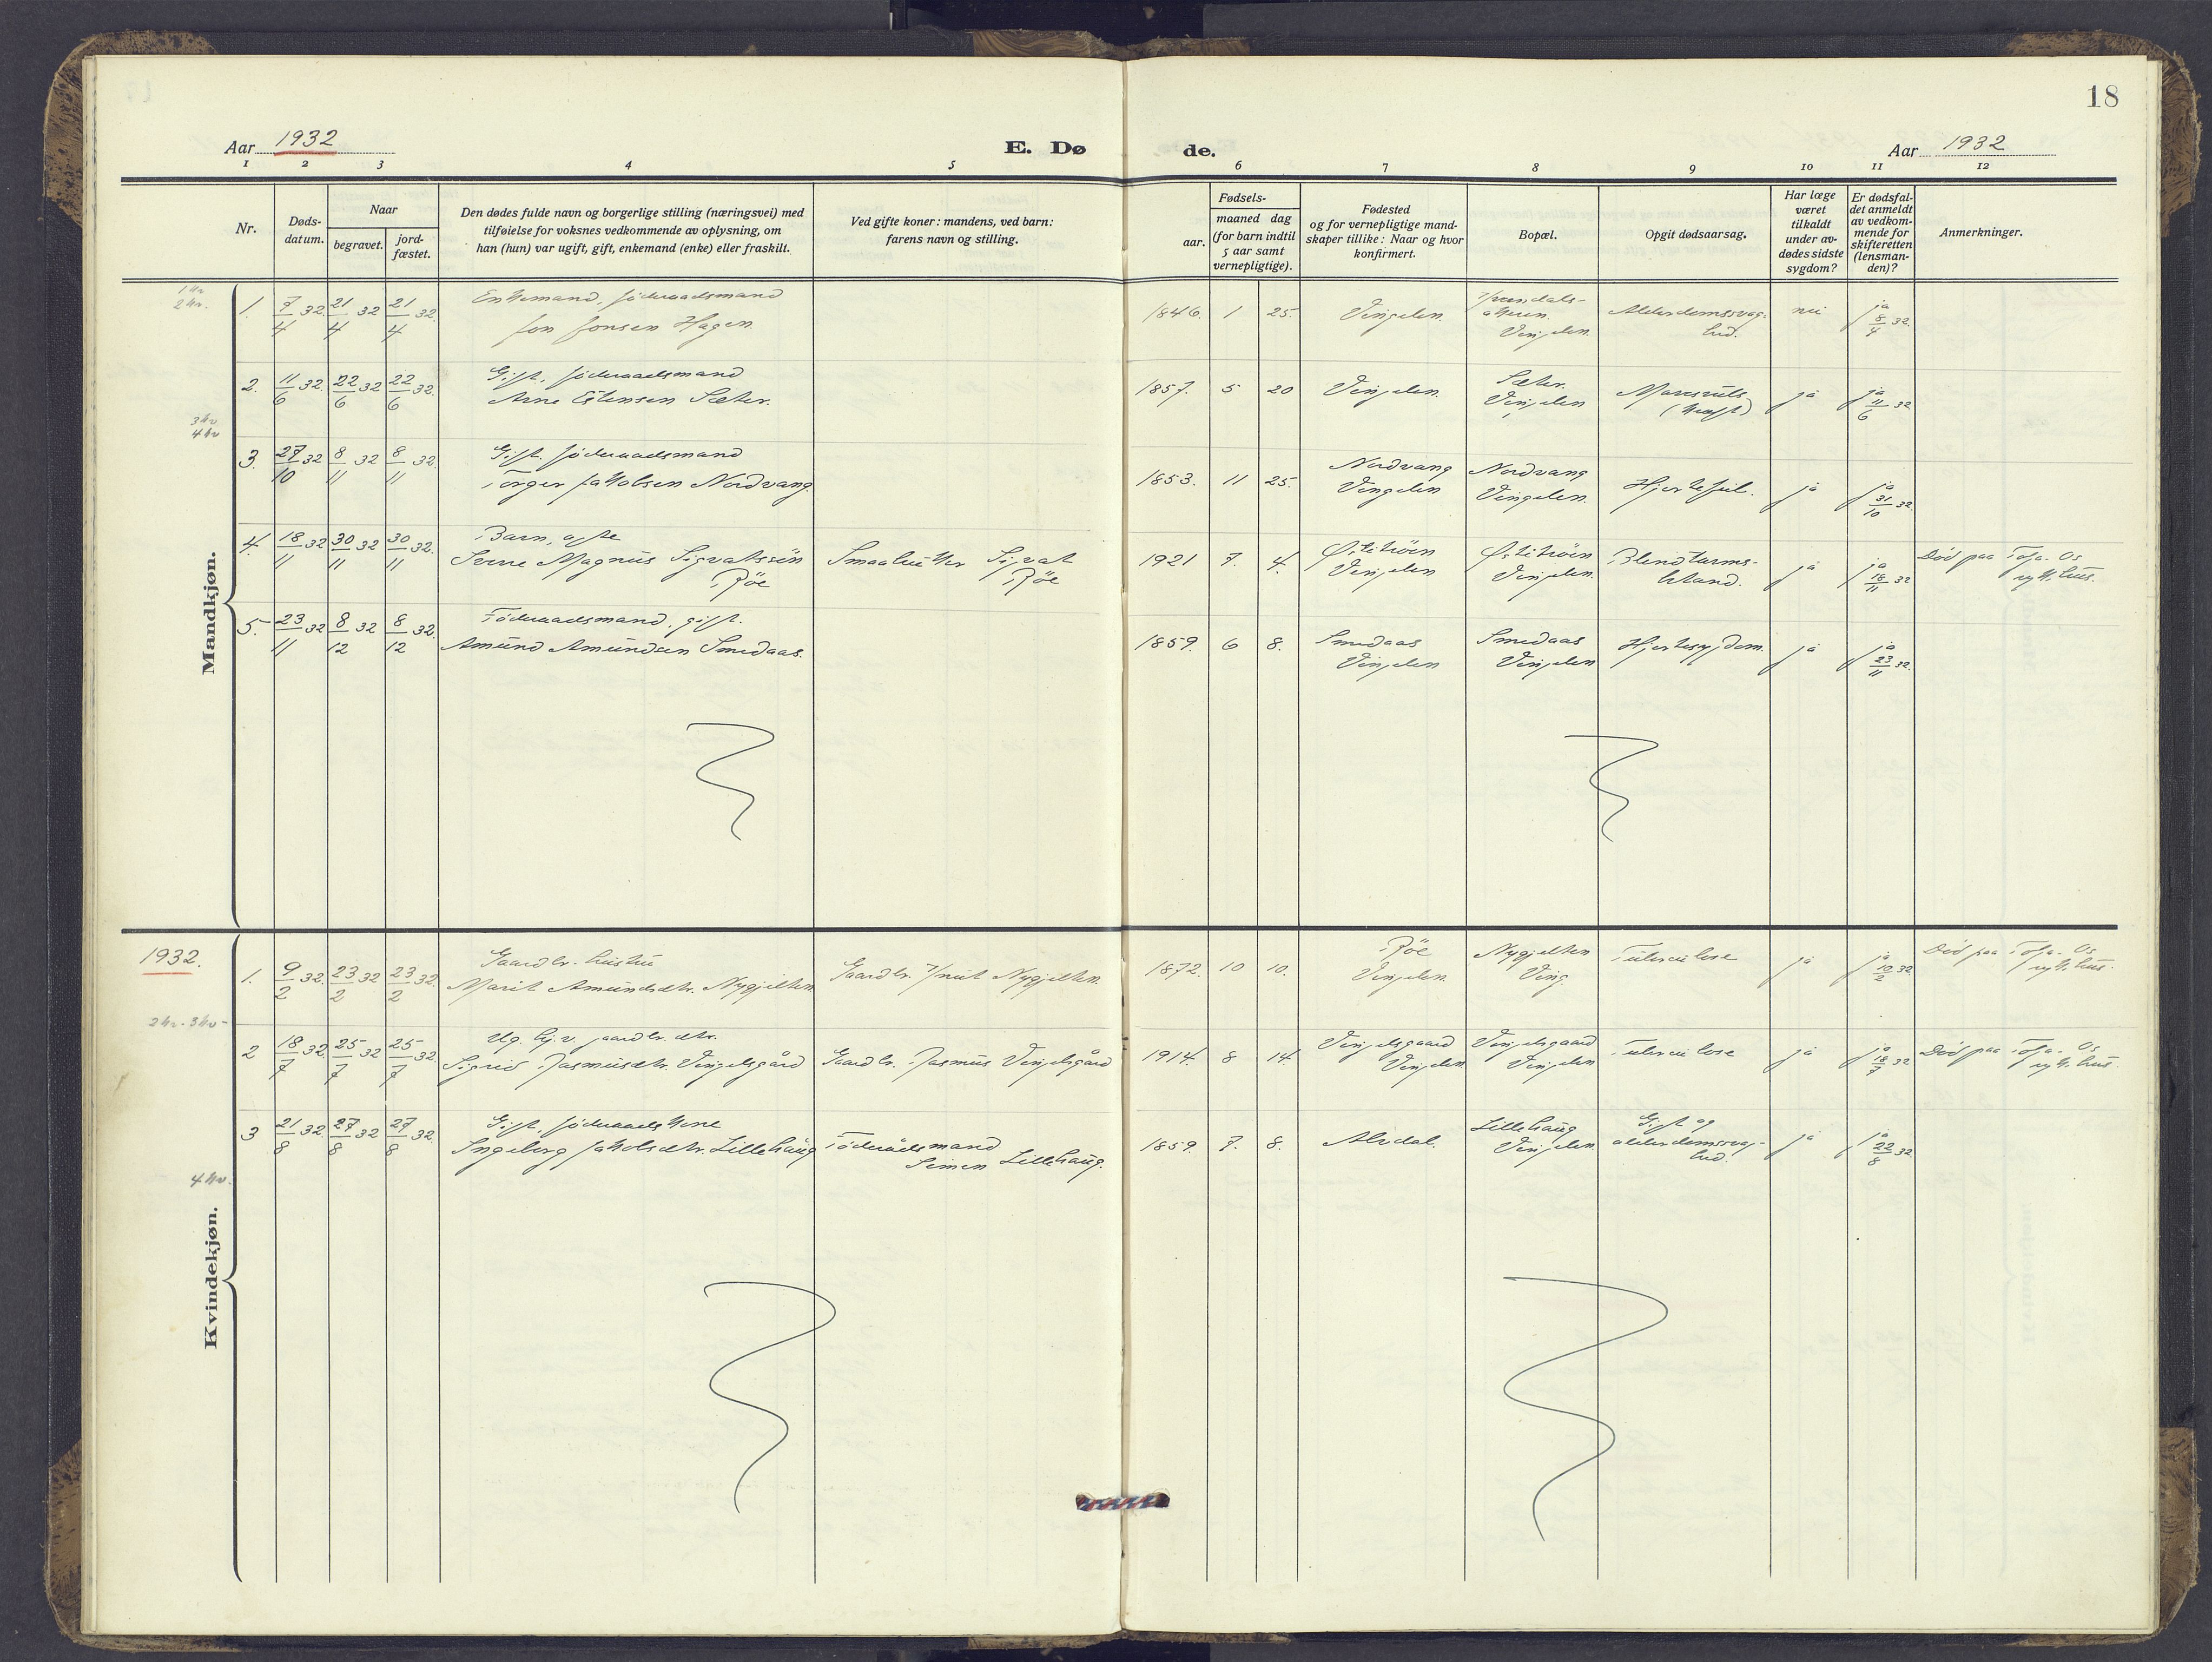 18
Aar 1932
E. Dø
de.
Aar 1932
1 2 3 4 5
6 7 8 9 10 11 12
Nr.
Døds-
datum.
Naar
begravet.
jord-
fæstet.
Den dødes fulde navn og borgerlige stilling (næringsvei) med
tilføielse for voksnes vedkommende av oplysning, om
han (hun) var ugift, gift, enkemand (enke) eller fraskilt.
Ved gifte koner: mandens, ved barn:
farens navn og stilling.
Fødsels-
aar.
maaned dag
(for barn indtil
5 aar samt
vernepligtige).
Fødested
og for vernepligtige mand-
skaper tillike: Naar og hvor
konfirmert.
Bopæl.
Opgit dødsaarsag.
Har læge
været
tilkaldt
under av-
dødes sidste
sygdom?
Er dødsfal-
det anmeldt
av vedkom-
mende for
skifteretten
(lensman-
den)?
Anmerkninger.
Mandkjøn.
1 kv.
2 kv.
1. 7/4 32. 21/4 32 21/4 32. Enkemand, föderaadsmand
Jon Jonsen Hagen.
1846. 1 25. Vingelen.
Vingelen.
Alderdomssvag-
hed.
nei
ja 8/4 32.
2. 11/6 32 22/6 32 22/6 32. Gift, föderaadsmand
Arne Estensen Sæter.
1857. 5 20 Vingelen.
Sæter.
Vingelen
(kræft)
ja
ja 11/6 32
3 kv
4 kv
3. 27/10 32 8/11 32 8/11 32. Gift. föderaadsmand
Torger Jakobsen Nordvang.
1853. 11 25. Nordvang
Vingelen
Nordvang
Vingelen.
Hjertefeil.
ja
ja 31/10 32.
4. 18/11 32 30/11 32 30/11 32. Barn, ægte
Sverre Magnus Sigvaldssön
Röe
Smaabruker Sigvat
Röe
1921 7. 4.
Vingelen
Vingelen.
Blendtarms-
betænd.
ja
ja 18/11 32
Död paa Tolga-Os
sykehus.
5. 23/11 32 8/12 32 8/12 32. Föderaadsmand, gift.
Amund Amundsen Smedaas.
1859. 6 8. Smedaas
Vingelen
Smedaas
Vingelen
Hjertesygdom.
ja
ja 23/11 32.
Kvindekjøn.
1932.
1. 9/2 32. 23/2 32 23/2 32. Gaardbr. hustru
Marit Amundsdtr. Nygjelten
Gaardbr. Knut Nygjelten.
1872. 10 10. Röe
Vingelen.
Nygjelten
Ving.
Tuberculose
ja
ja 10/2 32
Död paa Tolga-Os
sykehus.
2 kv. 3 kv.
2 18/7 32. 25/7 32 25/7 32. Ug. hj. v. gaardbr. dtr.
Sigrid Rasmusdtr. Vingelsgård
Gaardbr. Rasmus Vingelsgård
1914. 8 14. Vingelsgaard
Vingelen
Vingelsgaard
Vingelen
Tuberculose
ja
ja 18/7 32
Död paa Tolga-Os
sykehus.
3 21/8 32. 27/8 32 27/8 32. Gift, föderaadskone
Ingeborg Jakobsdtr. Lillehaug
Föderådsmand
Simen Lillehaug.
1859. 7. 8. Alvdal.
Lillehaug
Vingelen.
Gigt og
alderdomssvag-
hed.
ja
ja 22/8 32.
4 kv.